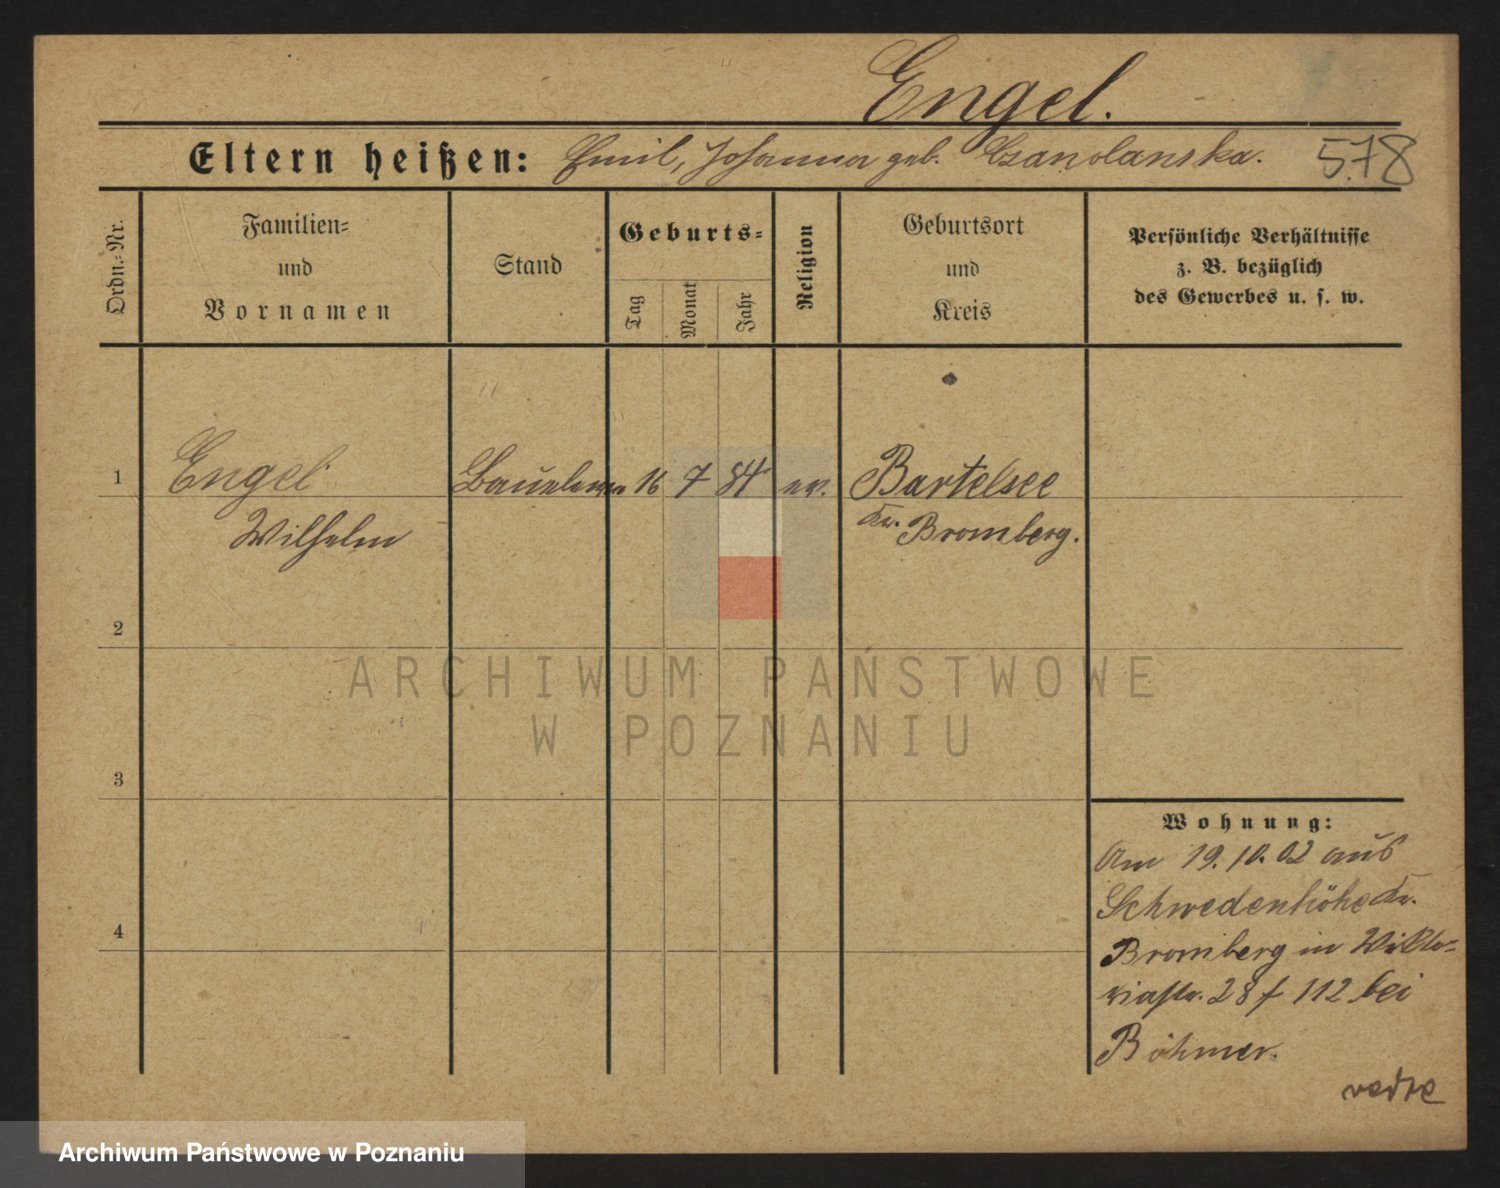 Engel.
Eltern heißen: Emil, Johanna geb. Czanolanska. 578
Ordn.-Nr.
Familien-
und
Vornamen
Stand
Geburts-
Tag
Monat
Jahr
Religion
Geburtsort
und
Kreis
Persönliche Verhältnisse
z. B. bezüglich
des Gewerbes u. s. w.
1 Engel Baueleve 16 7 84 ev. Bartelsee
Wilhelm Kr. Bromberg.
2
ARCHIWUM PAŃSTWOWE
W POZNANIU
3
Wohnung:
Am 19.10.02 aus
Schwedenhöhe Kr.
4
Bromberg in Wikto-
riastr. 28 f 112 bei
Böhmer.
Archiwum Państwowe w Poznaniu